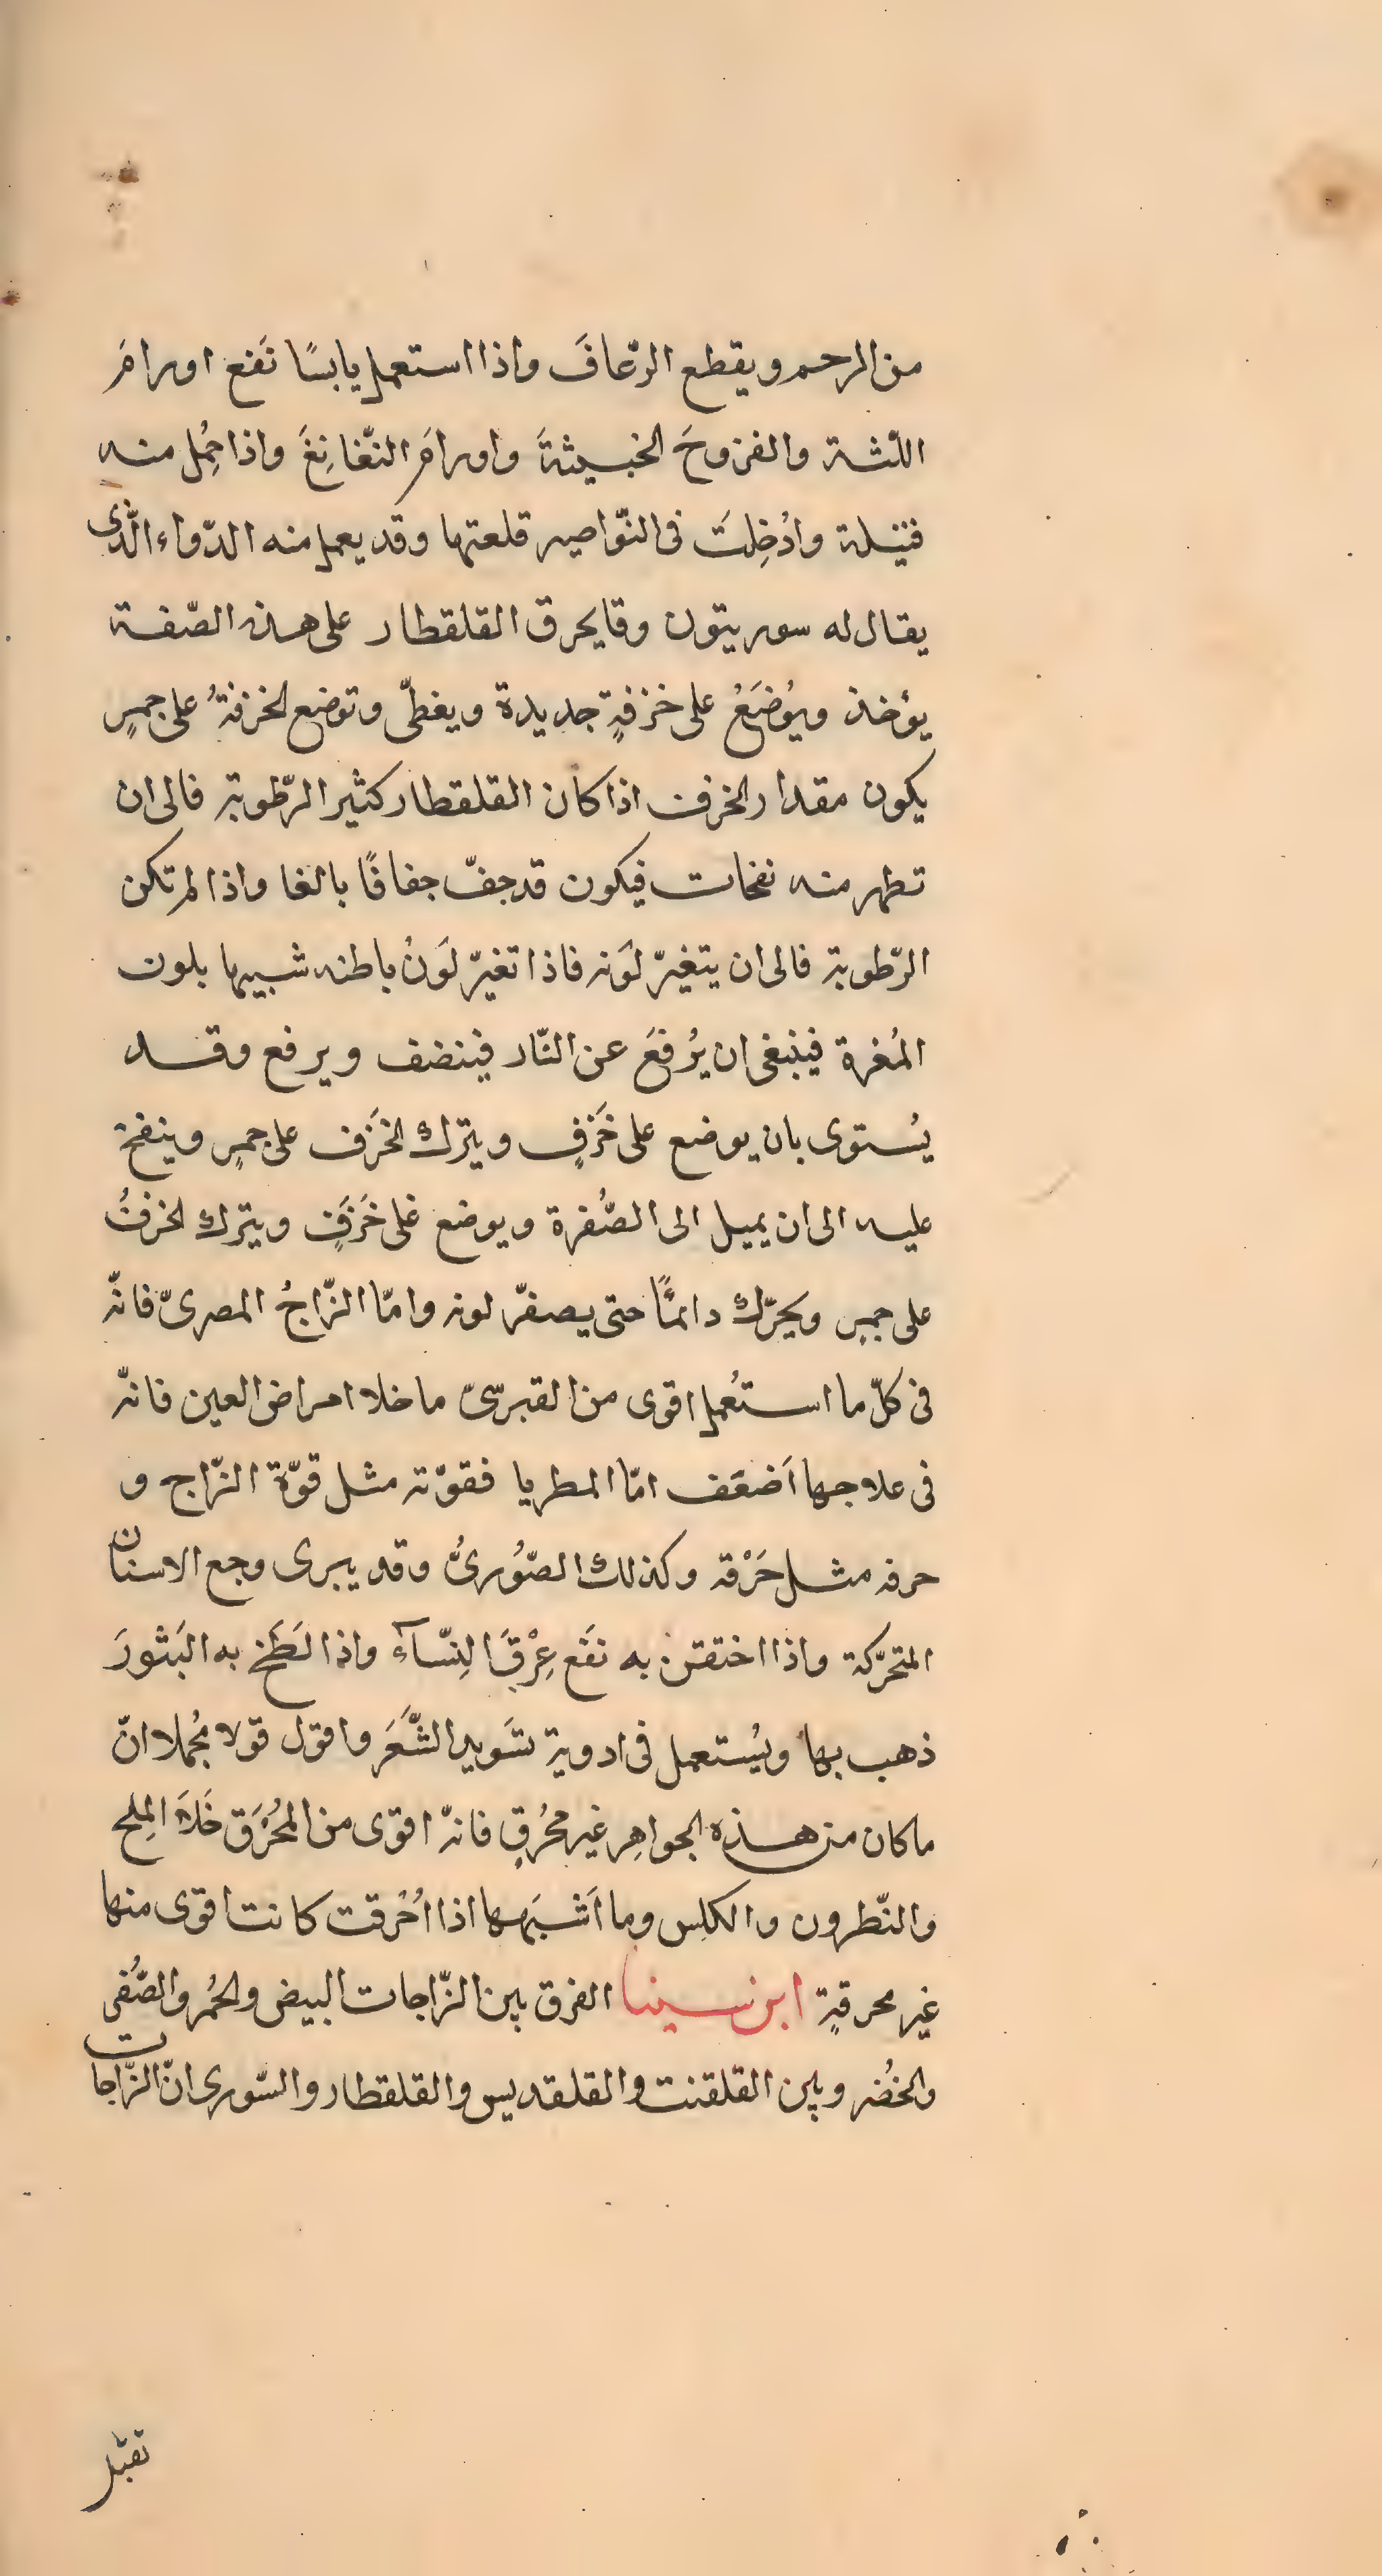 من الرحم ويقطع الرّعافَ واذا استعمل يابسًا نَفع اورامَ
اللّثة والقروحَ الخبيثةَ واورامَ النّغانِغَ واذا حُمِل منه
فتيلة وادُخِلتَ فى النّواصير قلعتها وقد يعمل منه الدّواء الّذى
يقال له سوريتون وقا يحرق القلقطار على هذه الصّفة
يؤخذ ويُوضَعُ على خزفةٍ جديدة ويغطّى وتوضع الخزفةُ على جمرٍ
يكون مقدار الخرف اذا كان القلقطار كثير الرّطوبة فالى ان
تظهر منه نفخات فيكون قد جفّ جفافًا بالغا واذا لم تكن
الرّطوبة فالى ان يتغيرّ لَونه فاذا تغيرّ لَونُ باطنه شبيها بلون
المُغرة فينبغى ان يُرفعَ عن النّار فينضف ويرفع وقد
يُستوى بان يوضع على خَزَفٍ ويترك الخَزَف على جمرٍ وينفخ
عليه الى ان يميل الى الصُّفرة ويوضع على خَزَفٍ ويترك الخزفُ
على جمرٍ ويحرّك دائمًا حتى يصفرّ لونه وامّا الزّاجُ المصرىّ فانّه
فى كلّ ما استُعمل اقوى من القبرسىّ ما خلا امراض العين فانّه
فى علاجها اَضعَف امّا المطريا فقوّته مثل قوّة الزّاج و
حرقه مثل حَرْقه وكذلك الصّورىُّ وقد يبرى وجع الاسنان
المتحرّكة واذا احتقن به نَفَع عِرْقَ النِسّآء واذا لَطَخ به البَثورَ
ذهب بها ويُستعمل فى ادوية تسَويد الشَّعَر واقول قولا مُجملا انّ
ما كان من هذه الجواهِر غير محُرقٍ فانّه اقوى من المُحْرَق خَلاَ المِلح
والنّطرون والكلِس وما اَشبَهها اذا اُحْرقت كانت اقوى منها
غير محرقةٍ ابن سينا الفرق بين الزّاجات البيض والحُمر والصُّفر
والخُضر وبين القلقنت والقلقديس والقلقطار والسّورى انّ الزّاجات
تقبل